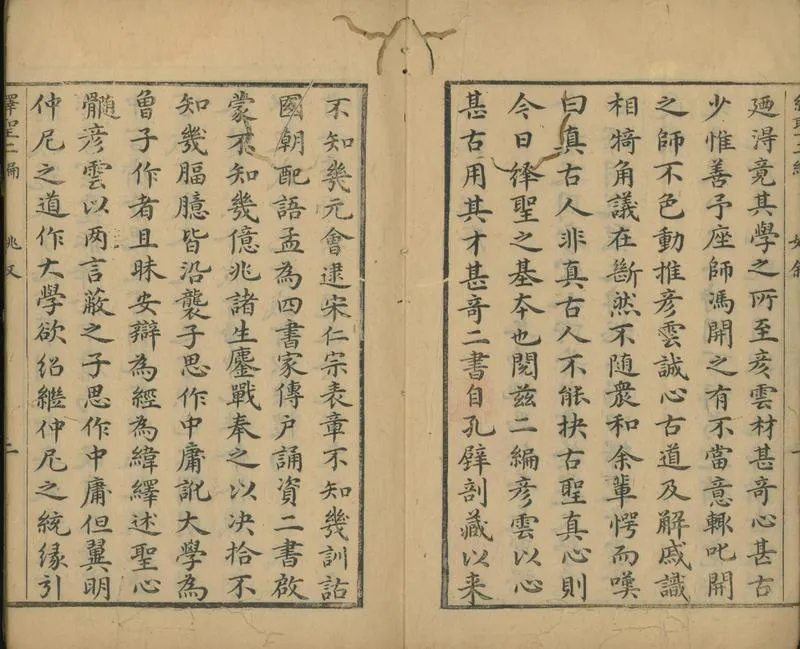 廼淂竟其學之所至彦雲材甚竒心甚古
少惟善予座師馮開之有不當意輒叱開
之師不色動推彦雲誠心古道及解戚識
相犄角議在斷然不隨衆和余輩愕而嘆
曰真古人非真古人不能抉古聖真心則
今日繹聖之基夲也閱兹二編彦雲以心
甚古用其才甚竒二書自孔壁剖藏以来
不知幾元會逮宋仁宗表章不知幾訓詁
國朝配語孟為四書家傳户誦資二書啟
蒙不知幾億兆諸生鏖戰奉之以决拾不
知幾腷臆皆沿襲子思作中庸訛大學為
曾子作者且昧安辯為經為緯繹述聖心
髓彦雲以两言蔽之子思作中庸但翼明
仲尼之道作大學欲紹繼仲尼之統縁引
繹聖二編 二